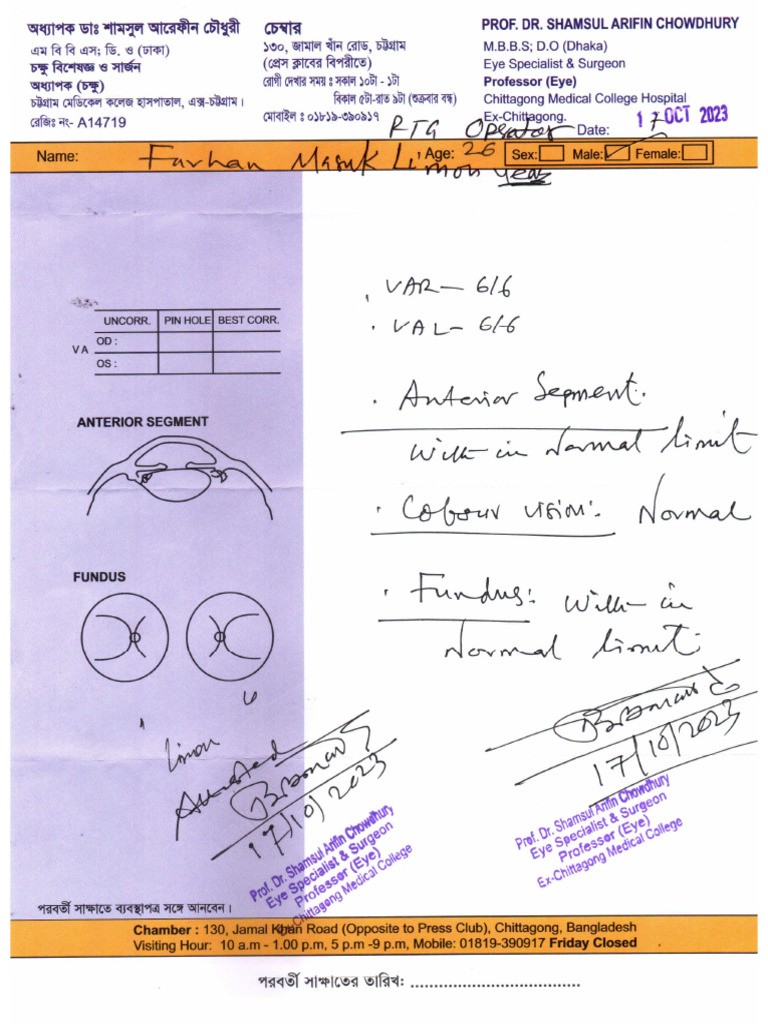 অধ্যাপক ডাঃ শামসুল আরেফীন চৌধুরী
এম বি বি এস; ডি. ও (ঢাকা)
চক্ষু বিশেষজ্ঞ ও সার্জন
অধ্যাপক (চক্ষু)
চট্টগ্রাম মেডিকেল কলেজ হাসপাতাল, এক্স-চট্টগ্রাম।
রেজিঃ নং- A14719
চেম্বার
১৩০, জামাল খাঁন রোড, চট্টগ্রাম
(প্রেস ক্লাবের বিপরীতে)
রোগী দেখার সময় : সকাল ১০টা - ১টা
বিকাল ৫টা-রাত ৯টা (শুক্রবার বন্ধ)
মোবাইল : ০১৮১৯-৩৯০৯১৭
PROF. DR. SHAMSUL ARIFIN CHOWDHURY
M.B.B.S; D.O (Dhaka)
Eye Specialist & Surgeon
Professor (Eye)
Chittagong Medical College Hospital
Ex-Chittagong.
RTG Operator Date: 17 OCT 2023
Name: Farhan Masuk Limon Age: 26 year Sex: Male: Female:
UNCORR. PIN HOLE BEST CORR.
VA
OD :
OS :
ANTERIOR SEGMENT
FUNDUS
. VAR - 6/6
. VAL - 6/6
. Anterior Segment.
With-in Normal limit
. Colour vision: Normal
. Fundus: With-in
Normal limit.
17/10/2023
Prof. Dr. Shamsul Arifin Chowdhury
Eye Specialist & Surgeon
Professor (Eye)
Ex-Chittagong Medical College
Limon
Attested
17/10/2023
Prof. Dr. Shamsul Arifin Chowdhury
Eye Specialist & Surgeon
Professor (Eye)
Ex-Chittagong Medical College
পরবর্তী সাক্ষাতে ব্যবস্থাপত্র সঙ্গে আনবেন।
Chamber : 130, Jamal Khan Road (Opposite to Press Club), Chittagong, Bangladesh
Visiting Hour: 10 a.m - 1.00 p.m, 5 p.m -9 p.m, Mobile: 01819-390917 Friday Closed
পরবর্তী সাক্ষাতের তারিখ: ....................................